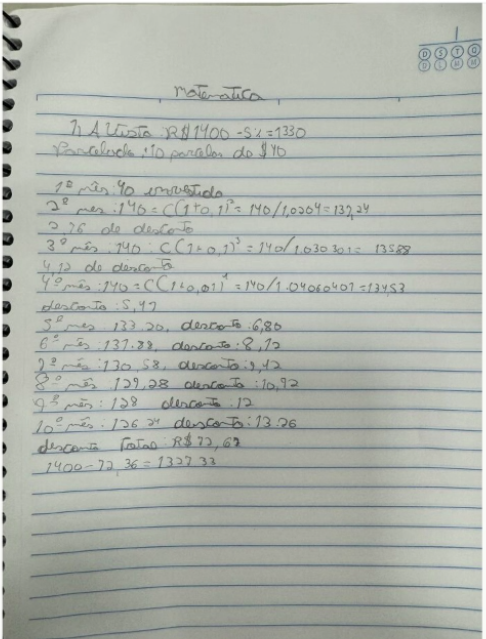 D S T Q
D L M M
Matematica
1) A Vista: R$1400 - 5% = 1330
Parcelado: 10 parcelas de $40
1º mês: 40 investido
2º mes: 140 = C(1+0,1)² = 140/1,0204 = 137,24
2,76 de desconto
3º mês: 140: C(1+0,1)³ = 140/1.030301 = 13588
4,12 de desconto
4º mês: 140 = C(1+0,01)⁴ = 140/1.04060401 = 13453
desconto: 5,47
5º mes: 133.20, desconto: 6,80
6º mês: 131.88, desconto: 8,12
7º mês: 130,58, desconto: 9,42
8º mês: 129,28 desconto: 10,92
9º mês: 128 desconto: 12
10º mês: 126.74 desconto: 13.26
desconto Total: R$ 72,67
1400 - 72,36 = 1327.33